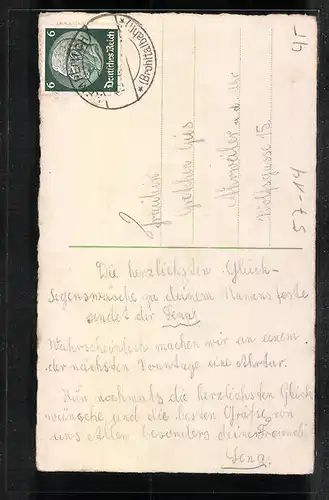 6 Deutsches Reich 6
*(Brohltalbahn)*
14
Fräulein
Gretchen Gies
Ahrweiler a. d. Ahr
Wolfsgasse 15.
Die herzlichsten Glück-
Segenswünsche zu deinem Namensfeste
sendet dir Lena.
Wahrscheinlich machen wir an einem
der nächsten Sonntage eine Ahrtur.
Nun nochmals die herzlichsten Glück
wünsche und die besten Grüße von
uns Allen besonders deiner Freundi
Lena.